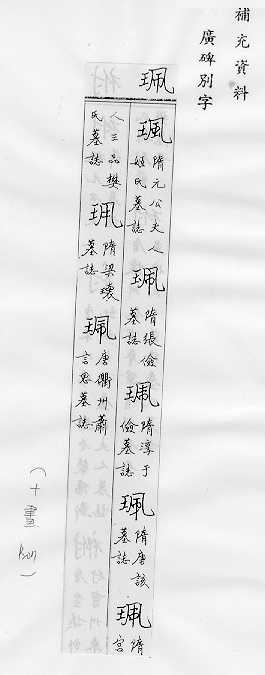 補充資料
廣碑別字
珮
珮 隋元公夫人姬氏墓誌 珮 隋張儉墓誌 珮 隋淳于儉墓誌 珮 隋唐該墓誌 珮 隋宮
人三品樊氏墓誌 珮 隋梁瓌墓誌 珮 唐衢州蕭言思墓誌
(十畫 )